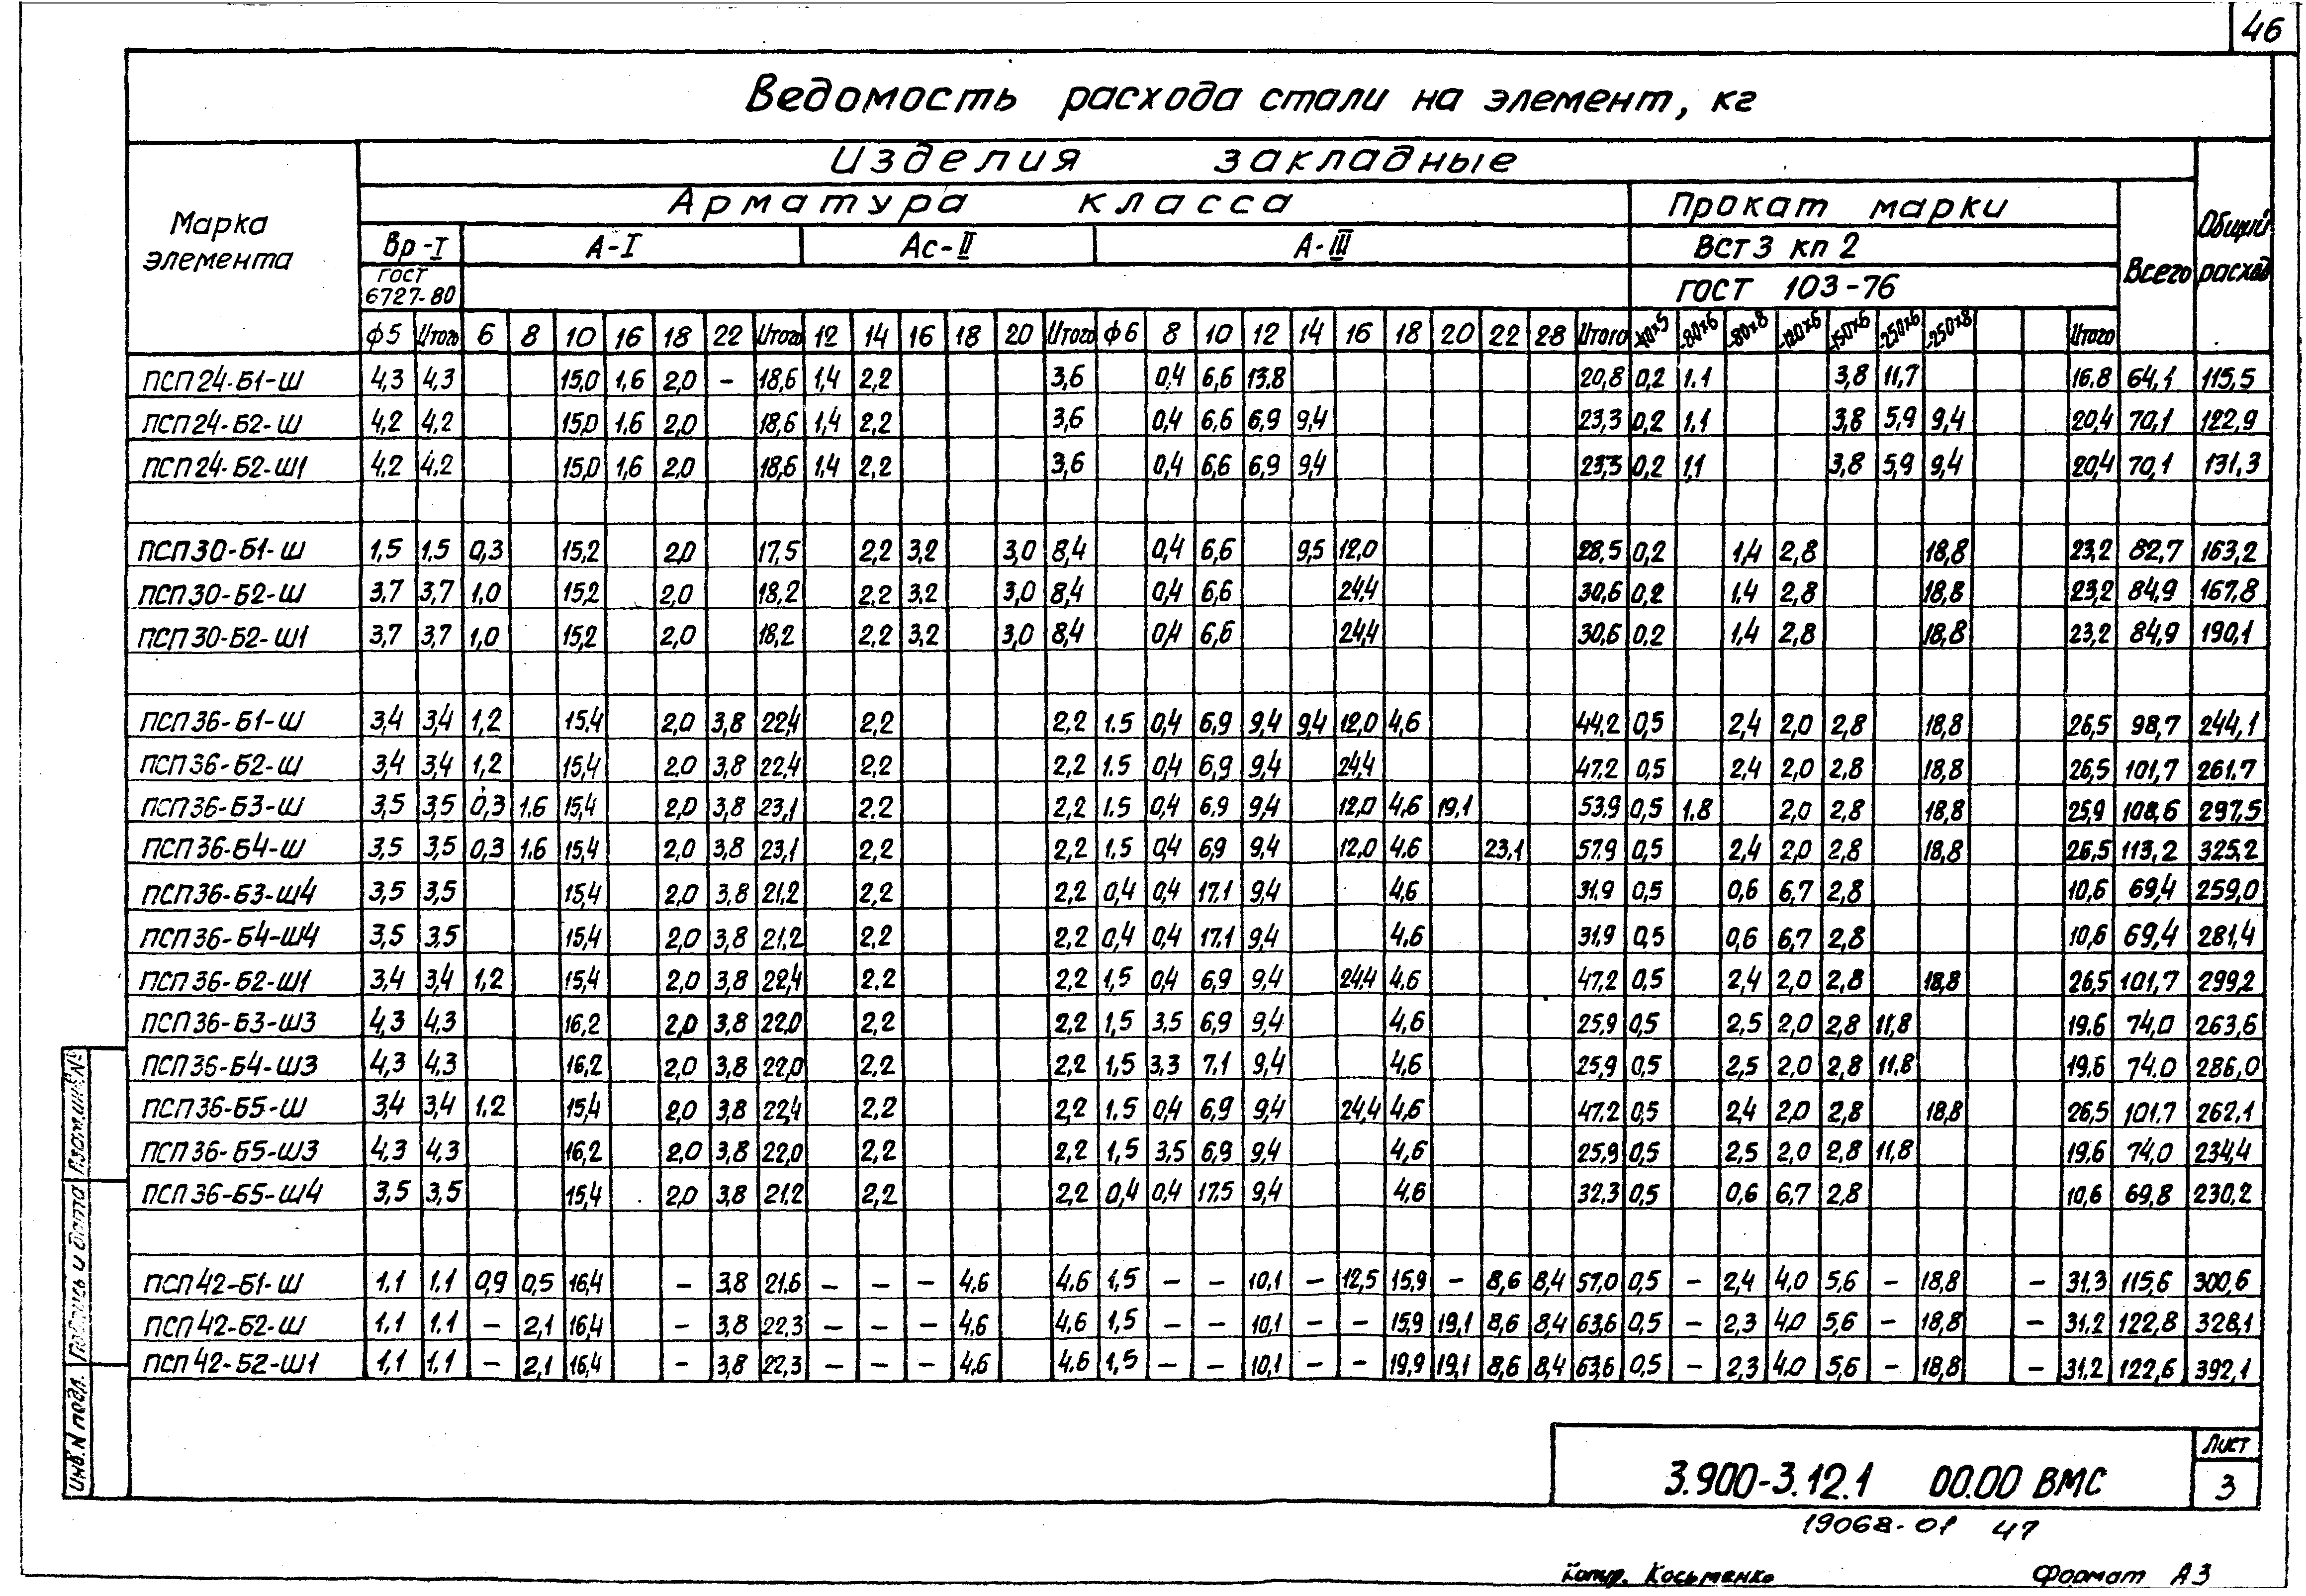 46
Ведомость расхода стали на элемент, кг
Марка элемента
Изделия закладные
Арматура класса
Прокат марки
Всего
Общий расход
Вр-I
А-I
Ас-II
А-III
ВСт3 кп 2
ГОСТ 6727-80
ГОСТ 103-76
ф5 Итого 6 8 10 16 18 22 Итого 12 14 16 18 20 Итого ф6 8 10 12 14 16 18 20 22 28 Итого -40х5 -80х6 -80х8 -120х6 -150х6 -250х6 -250х8 Итого
ПСП24-Б1-Ш 4,3 4,3 15,0 1,6 2,0 – 18,6 1,4 2,2 3,6 0,4 6,6 13,8 20,8 0,2 1.1 3,8 11,7 16,8 64,1 115,5
ПСП24-Б2-Ш 4,2 4,2 15,0 1,6 2,0 18,6 1,4 2,2 3,6 0,4 6,6 6,9 9,4 23,3 0,2 1.1 3,8 5,9 9,4 20,4 70,1 122,9
ПСП24-Б2-Ш1 4,2 4,2 15,0 1,6 2,0 18,6 1,4 2,2 3,6 0,4 6,6 6,9 9,4 23,3 0,2 1,1 3,8 5,9 9,4 20,4 70,1 131,3
ПСП30-Б1-Ш 1,5 1,5 0,3 15,2 2,0 17,5 2,2 3,2 3,0 8,4 0,4 6,6 9,5 12,0 28,5 0,2 1,4 2,8 18,8 23,2 82,7 163,2
ПСП30-Б2-Ш 3,7 3,7 1,0 15,2 2,0 18,2 2,2 3,2 3,0 8,4 0,4 6,6 24,4 30,6 0,2 1,4 2,8 18,8 23,2 84,9 167,8
ПСП30-Б2-Ш1 3,7 3,7 1,0 15,2 2,0 18,2 2,2 3,2 3,0 8,4 0,4 6,6 24,4 30,6 0,2 1,4 2,8 18,8 23,2 84,9 190,1
ПСП36-Б1-Ш 3,4 3,4 1,2 15,4 2,0 3,8 22,4 2,2 2,2 1.5 0,4 6,9 9,4 9,4 12,0 4,6 44,2 0,5 2,4 2,0 2,8 18,8 26,5 98,7 244,1
ПСП36-Б2-Ш 3,4 3,4 1,2 15,4 2,0 3,8 22,4 2,2 2,2 1.5 0,4 6,9 9,4 24,4 47,2 0,5 2,4 2,0 2,8 18,8 26,5 101,7 261,7
ПСП36-Б3-Ш 3,5 3,5 0,3 1.6 15,4 2,0 3,8 23,1 2,2 2,2 1.5 0,4 6,9 9,4 12,0 4,6 19,1 53,9 0,5 1.8 2,0 2,8 18,8 25,9 108,6 297,5
ПСП36-Б4-Ш 3,5 3,5 0,3 1.6 15,4 2,0 3,8 23,1 2,2 2,2 1,5 0,4 6,9 9,4 12,0 4,6 23,1 57,9 0,5 2,4 2,0 2,8 18,8 26,5 113,2 325,2
ПСП36-Б3-Ш4 3,5 3,5 15,4 2,0 3,8 21,2 2,2 2,2 0,4 0,4 17,1 9,4 4,6 31,9 0,5 0,6 6,7 2,8 10,6 69,4 259,0
ПСП36-Б4-Ш4 3,5 3,5 15,4 2,0 3,8 21,2 2,2 2,2 0,4 0,4 17.1 9,4 4,6 31,9 0,5 0,6 6,7 2,8 10,6 69,4 281,4
ПСП36-Б2-Ш1 3,4 3,4 1,2 15,4 2,0 3,8 22,4 2,2 2,2 1,5 0,4 6,9 9,4 24,4 4,6 47,2 0,5 2,4 2,0 2,8 18,8 26,5 101,7 299,2
ПСП36-Б3-Ш3 4,3 4,3 16,2 2,0 3,8 22,0 2,2 2,2 1,5 3,5 6,9 9,4 4,6 25,9 0,5 2,5 2,0 2,8 11,8 19.6 74,0 263,6
ПСП36-Б4-Ш3 4,3 4,3 16,2 2,0 3,8 22,0 2,2 2,2 1,5 3,3 7,1 9,4 4,6 25,9 0,5 2,5 2,0 2,8 11,8 19,6 74.0 286,0
ПСП36-Б5-Ш 3,4 3,4 1,2 15,4 2,0 3,8 22,4 2,2 2,2 1,5 0,4 6,9 9,4 24,4 4,6 47,2 0,5 2,4 2,0 2,8 18,8 26,5 101,7 262,1
ПСП36-Б5-Ш3 4,3 4,3 16,2 2,0 3,8 22,0 2,2 2,2 1,5 3,5 6,9 9,4 4,6 25,9 0,5 2,5 2,0 2,8 11,8 19,6 74,0 234,4
ПСП36-Б5-Ш4 3,5 3,5 15,4 2,0 3,8 21,2 2,2 2,2 0,4 0,4 17,5 9,4 4,6 32,3 0,5 0,6 6,7 2,8 10,6 69,8 230,2
ПСП42-Б1-Ш 1,1 1,1 0,9 0,5 16,4 – 3,8 21,6 – – – 4,6 4,6 1,5 – – 10,1 – 12,5 15,9 – 8,6 8,4 57,0 0,5 – 2,4 4,0 5,6 – 18,8 – 31,3 115,6 300,6
ПСП42-Б2-Ш 1.1 1.1 – 2,1 16,4 – 3,8 22,3 – – – 4,6 4,6 1,5 – – 10,1 – – 15,9 19,1 8,6 8,4 63,6 0,5 – 2,3 4,0 5,6 – 18,8 – 31,2 122,8 328,1
ПСП42-Б2-Ш1 1,1 1,1 – 2,1 16,4 – 3,8 22,3 – – – 4,6 4,6 1,5 – – 10,1 – – 19,9 19,1 8,6 8,4 63,6 0,5 – 2,3 4,0 5,6 – 18,8 – 31,2 122,6 392,1
Инв.N подл.
Подпись и дата
Взам.инв.№
3.900-3.12.1 00.00 ВМС
Лист
3
19068-01 47
Копир. Косьменко
Формат А3